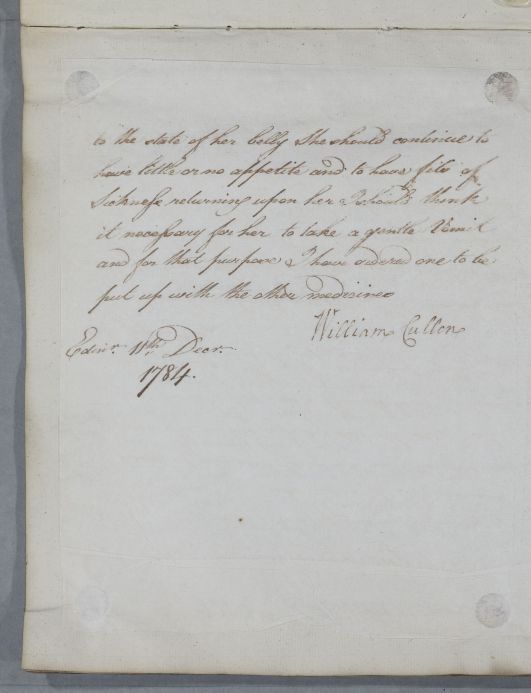 to the state of her belly She should continue to
have little or no appetite and to have fits of
Sickness returning upon her I should think
it necessary for her to take a gentle Vomit
and for that purpose I have ordered one to be
put up with the other medicines
William Cullen
Edinr. 11th. Decr.
1784.